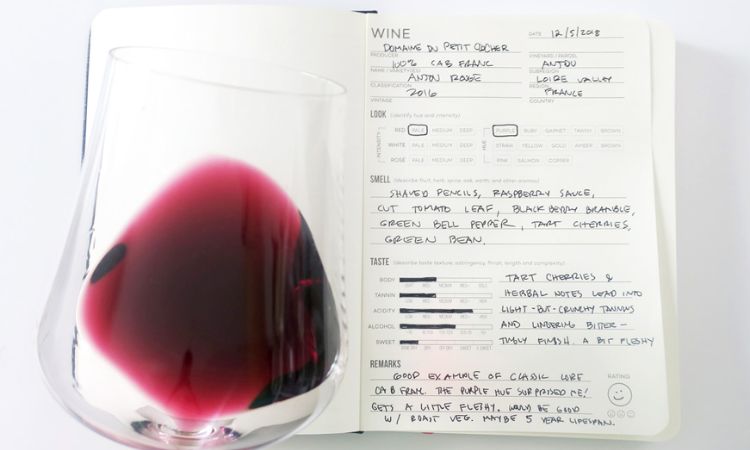 WINE
DATE 12/5/2018
DOMAINE DU PETIT CLOCHER
PRODUCER VINEYARD / PARCEL
100% CAB FRANC ANJOU
NAME / VARIETY(IES) SUBREGION
ANJOU ROUGE LOIRE VALLEY
CLASSIFICATION REGION
2016 FRANCE
VINTAGE COUNTRY
LOOK (identify hue and intensity)
INTENSITY RED PALE MEDIUM DEEP HUE PURPLE RUBY GARNET TAWNY BROWN
WHITE PALE MEDIUM DEEP STRAW YELLOW GOLD AMBER BROWN
ROSÉ PALE MEDIUM DEEP PINK SALMON COPPER
SMELL (describe fruit, herb, spice, oak, earth, and other aromas)
SHAVED PENCILS, RASPBERRY SAUCE,
CUT TOMATO LEAF, BLACKBERRY BRAMBLE,
GREEN BELL PEPPER, TART CHERRIES,
GREEN BEAN.
TASTE (describe taste, texture, astringency, finish, length and complexity)
BODY TART CHERRIES &
TANNIN HERBAL NOTES LEAD INTO
ACIDITY LIGHT-BUT-CRUNCHY TANNINS
ALCOHOL AND LINGERING BITTER-
SWEET TINGLY FINISH. A BIT FLESHY
REMARKS
GOOD EXAMPLE OF CLASSIC LOIRE
RATING
CAB FRAN. THE PURPLE HUE SURPRISED ME!
GETS A LITTLE FLESHY. WOULD BE GOOD
W/ ROAST VEG. MAYBE 5 YEAR LIFESPAN.